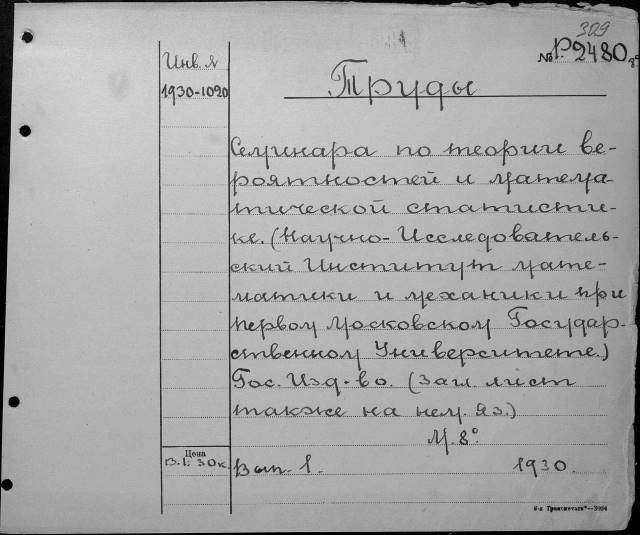 309
№ Р.2480 8°
Инв. №
1930-1020
Труды
Семинара по теории ве-
роятностей и матема
тической статисти-
ке. (Научно-Исследователь-
ский Институт мате-
матики и механики при
первом Московском Государ-
ственном Университете.)
Гос. Изд-во. (Загл. лист
также на нем. яз.)
М. 8°.
Цена
В.1: 30к.
Вып. 1. 1930.